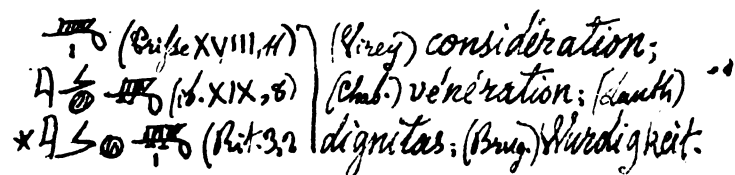 (Prisse XVIII, 11) (Virey) considération;
(ib. XIX, 8) (Chab.) vénération; (Lauth)
* (Rit. 3, 2 dignitas; (Brug.) Würdigkeit.